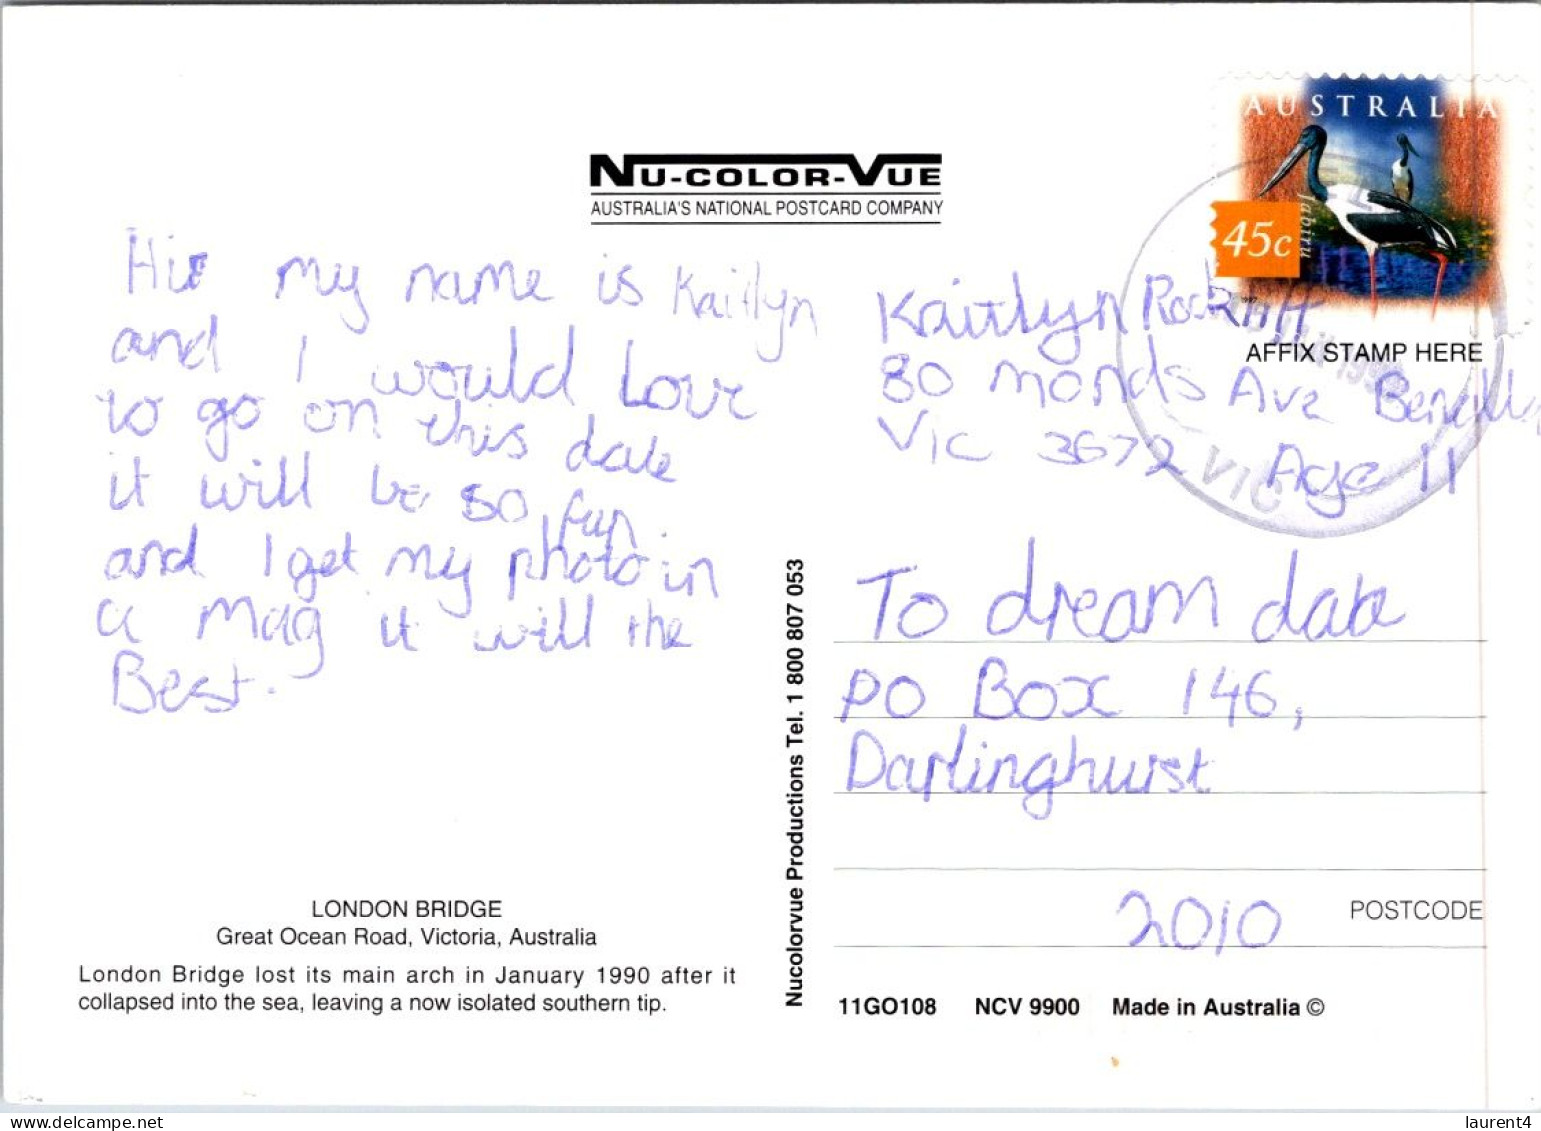 NU-COLOR-VUE
AUSTRALIA'S NATIONAL POSTCARD COMPANY
AUSTRALIA
Jabiru
45c
1997
AFFIX STAMP HERE
VIC
Hi my name is Kaitlyn
and I would Love
to go on this date
it will be so fun
and I get my photo in
a mag it will the
Best.
Kaitlyn
80 monds Ave Benalla
Vic 3672 Age 11
To dream date
PO Box 146,
Darlinghurst
2010
POSTCODE
Nucolorvue Productions Tel. 1 800 807 053
LONDON BRIDGE
Great Ocean Road, Victoria, Australia
London Bridge lost its main arch in January 1990 after it
collapsed into the sea, leaving a now isolated southern tip.
11GO108 NCV 9900 Made in Australia ©
www.delcampe.net
laurent4